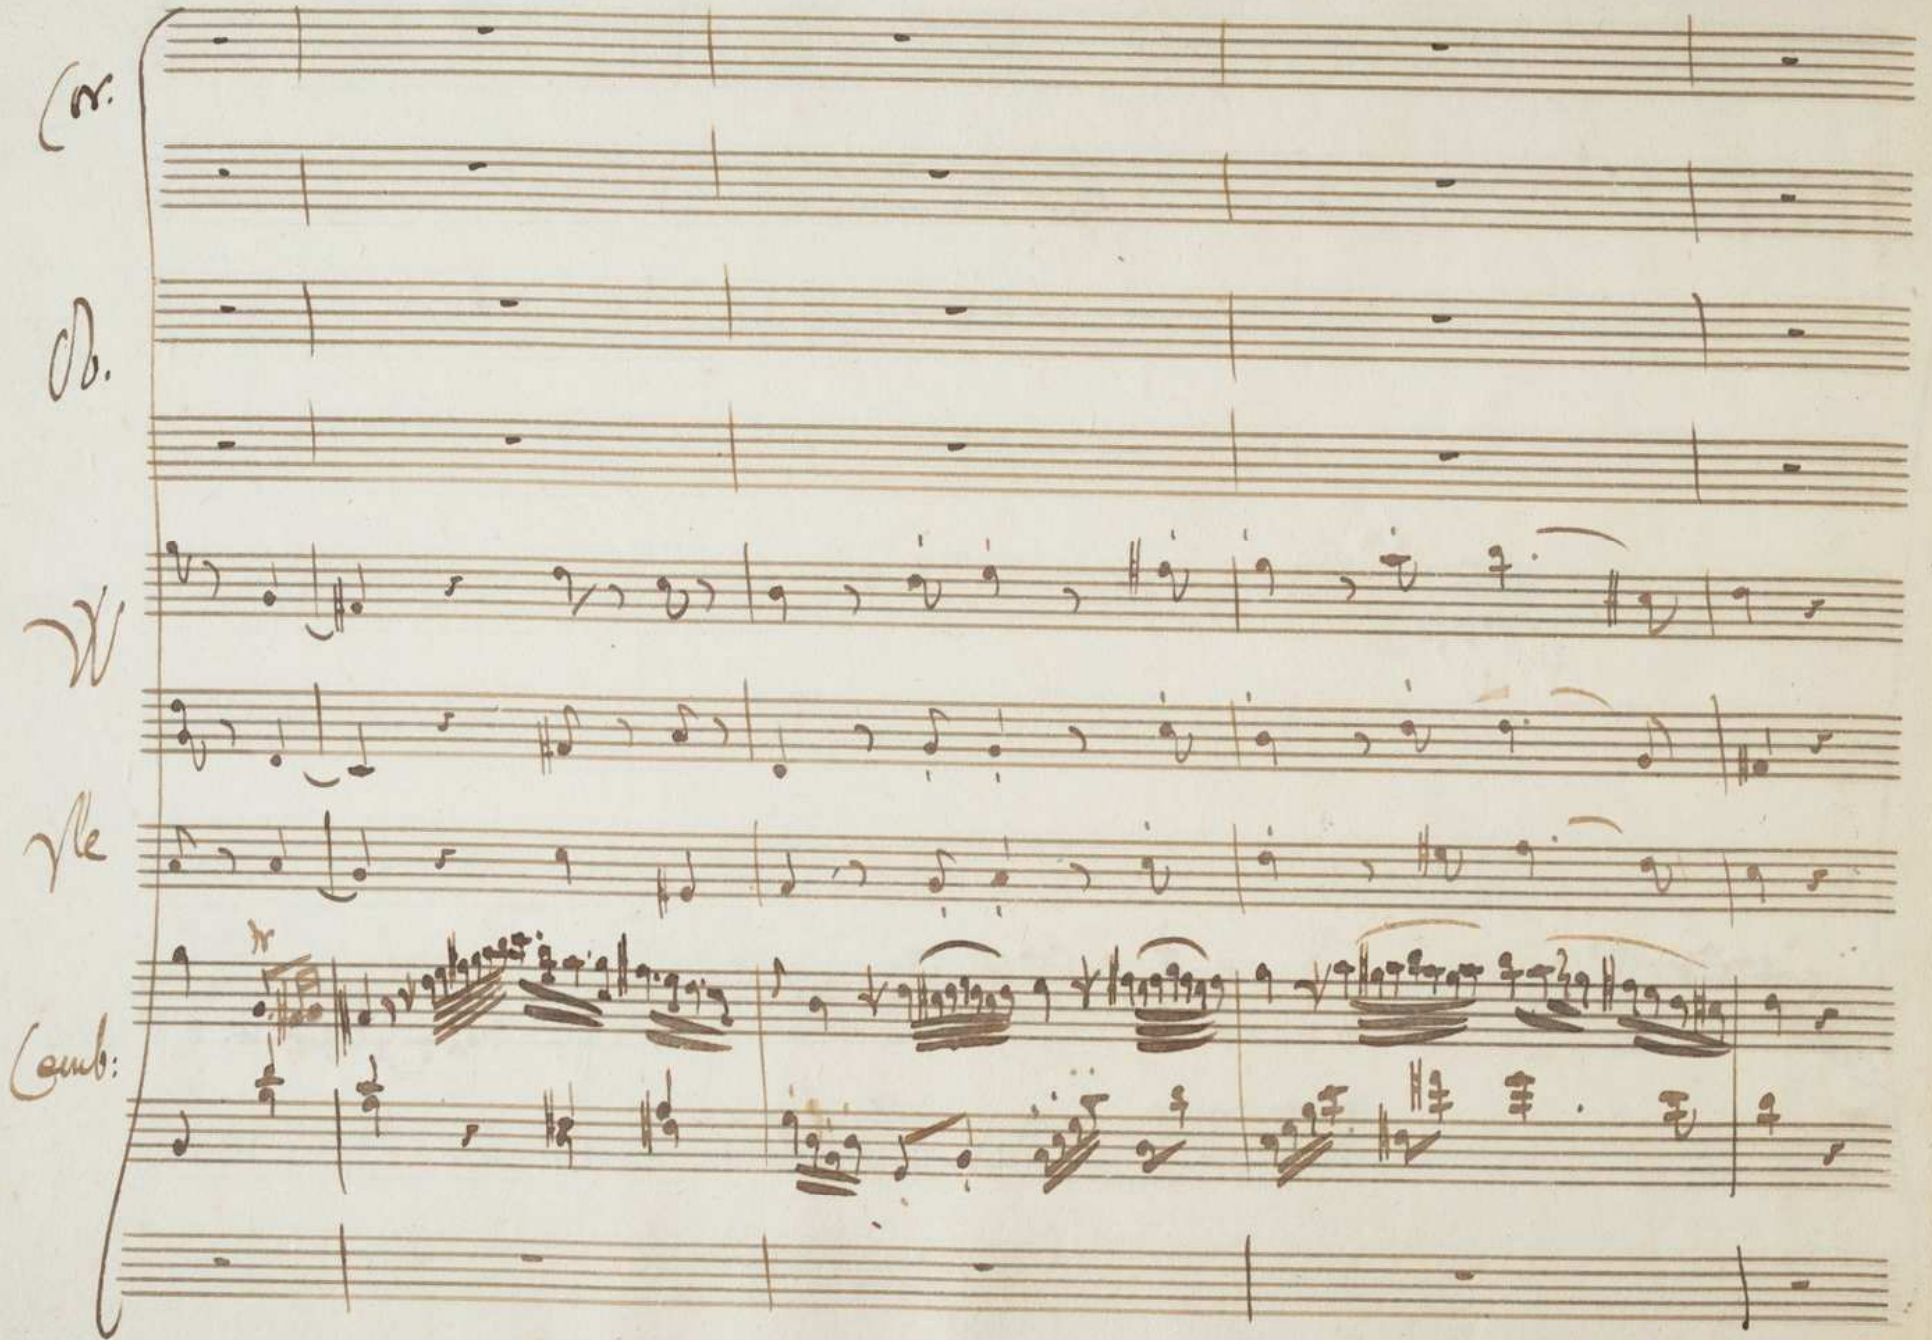 Cor.
Ob.
VV
Vle
tr
Cemb: